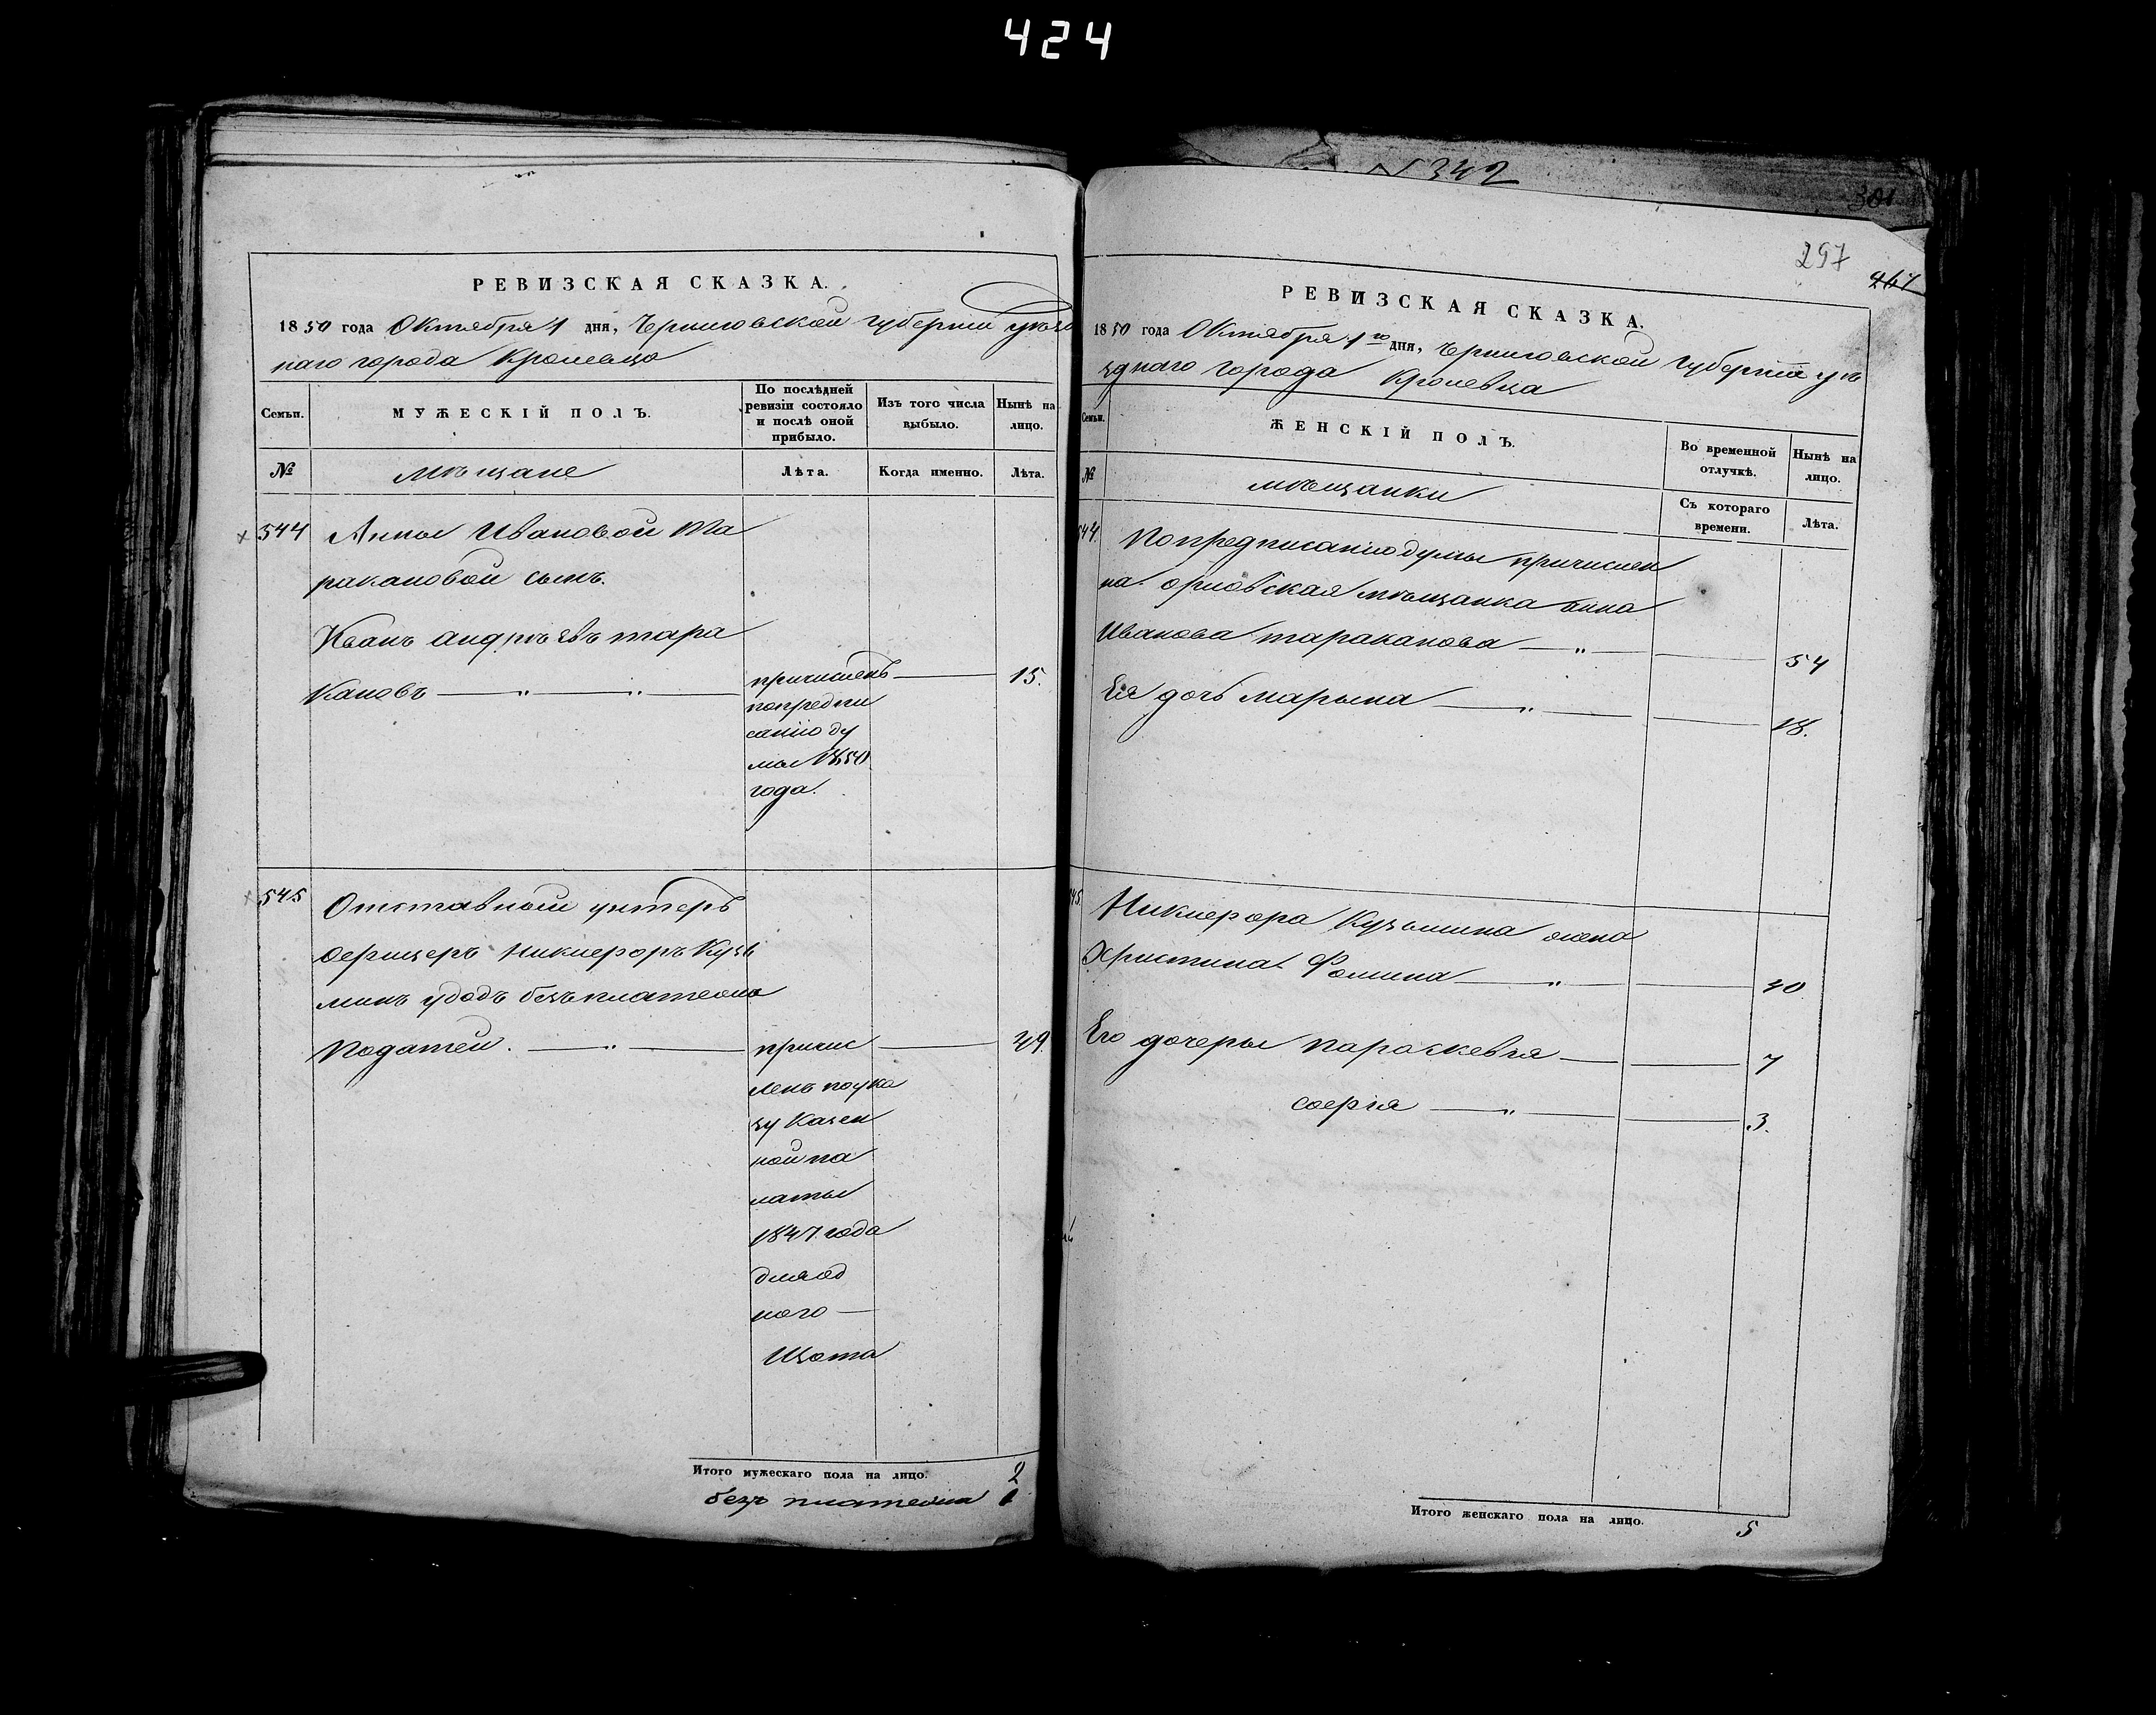 424
N 342
301
297
467
РЕВИЗСКАЯ СКАЗКА.
1850 года Октября 1 дня, Черниговской губернии уѣзд
наго города Кролевца
Семьи.
МУЖЕСКІЙ ПОЛЪ.
По послѣдней ревизіи состояло и послѣ оной прибыло.
Изъ того числа выбыло.
Нынѣ на лицо.
№
мѣщане
Лѣта.
Когда именно.
Лѣта.
544 Анны Ивановой Та
ракановой сынъ.
Иванъ андрѣевъ тара
кановъ — „ — „ — причисленъ — 15.
попредпи
санію ду
мы 1850
года.
545 Отставной унтеръ
оефицеръ Никиефоръ Кузь
минъ удодъ безъ платежа
податей. — „ — причис — 49.
ленъ поука
зу Казен
ной па
латы
1847 года
для од
ного —
Щота
Итого мужескаго пола на лицо. 2
безъ платежа 1
РЕВИЗСКАЯ СКАЗКА.
1850 года Октября 1го дня, Черниговской Губерніи уѣ
зднаго города Кролевца
Семьи.
ЖЕНСКІЙ ПОЛЪ.
Во временной отлучкѣ.
Нынѣ на лицо.
№
мѣщанки
Съ котораго времени.
Лѣта.
544. Попредписанію думы причислен
на орловская мѣщанка анна
Иванова тараканова — „ — 54
Ея дочь марьяна — „ — 18.
545 Никиефора Кузьмина жена
Христина Фомина — „ — 40
Его дочеры параскевия — 7
соефія — „ — 3.
Итого женскаго пола на лицо. 5